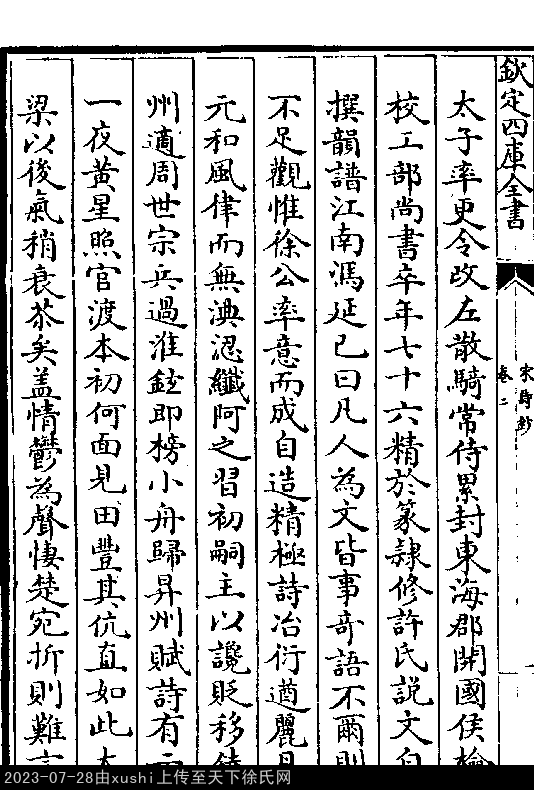 欽定四庫全書
宋詩鈔
卷二
太子率更令改左散騎常侍累封東海郡開國侯檢
校工部尚書卒年七十六精於篆隸修許氏說文自
撰韻譜江南馮延巳曰凡人為文皆事奇語不爾則
不足觀惟徐公率意而成自造精極詩冶衍遒麗具
元和風律而無淟涊纖阿之習初嗣主以讒貶移饒
州適周世宗兵過淮鉉即榜小舟歸昇州賦詩有云
一夜黃星照官渡本初何面見田豐其伉直如此大
梁以後氣稍衰苶矣蓋情鬱為聲悽楚宛折則難言
2023-07-28由xushi上传至天下徐氏网